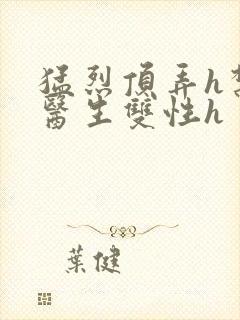 猛烈頂弄h
醫生雙性h
葉健